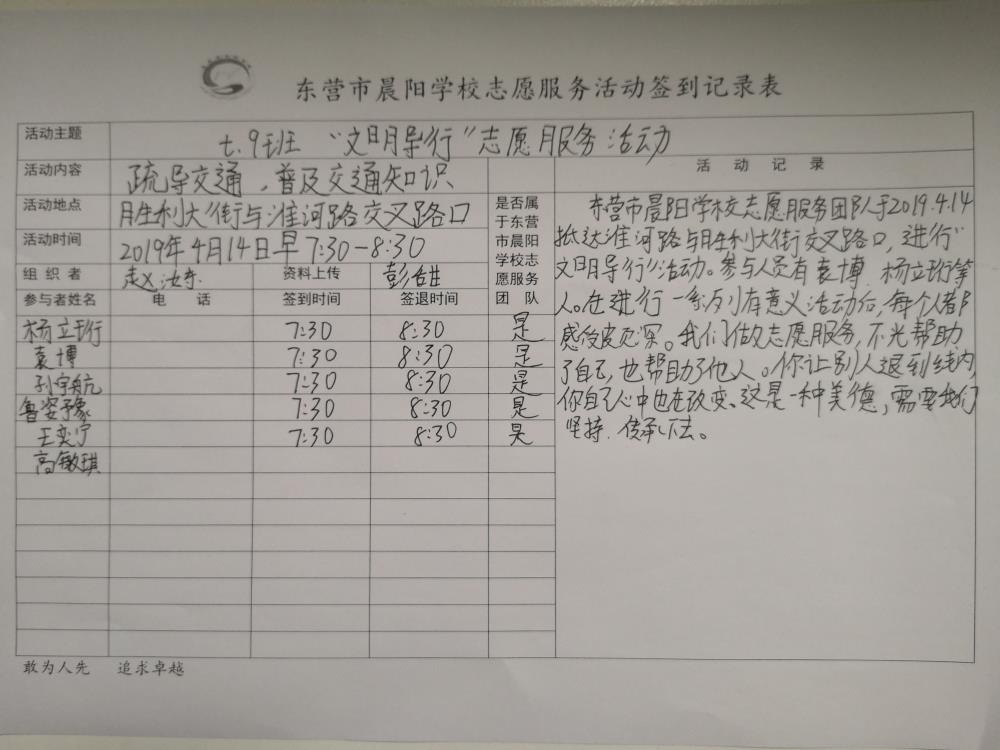 东营市晨阳学校志愿服务活动签到记录表
活动主题 七.9班 “文明导行”志愿服务活动
活动内容 疏导交通,普及交通知识
活动地点 胜利大街与淮河路交叉路口
活动时间 2019年4月14日早7:30-8:30
组织者 资料上传
参与者姓名 电话 签到时间 签退时间
是否属
于东营
市晨阳
学校志
愿服务
团队
杨立珩 7:30 8:30 是
袁博 7:30 8:30 是
孙宇航 7:30 8:30 是
鲁姿予豪 7:30 8:30 是
王奕宁 7:30 8:30 是
高敏琪
活动记录
东营市晨阳学校志愿服务团队于2019.4.14
抵达淮河路与胜利大街交叉路口,进行“
文明导行”活动。参与人员有袁博.杨立珩等
人。在进行一系列有意义活动后,每个人都
感受颇深。我们做志愿服务,不光帮助
了自己,也帮助了他人。你让别人退到线内,
你自己心中也在改变.这是一种美德,需要我们
坚持.传承下去。
敢为人先 追求卓越